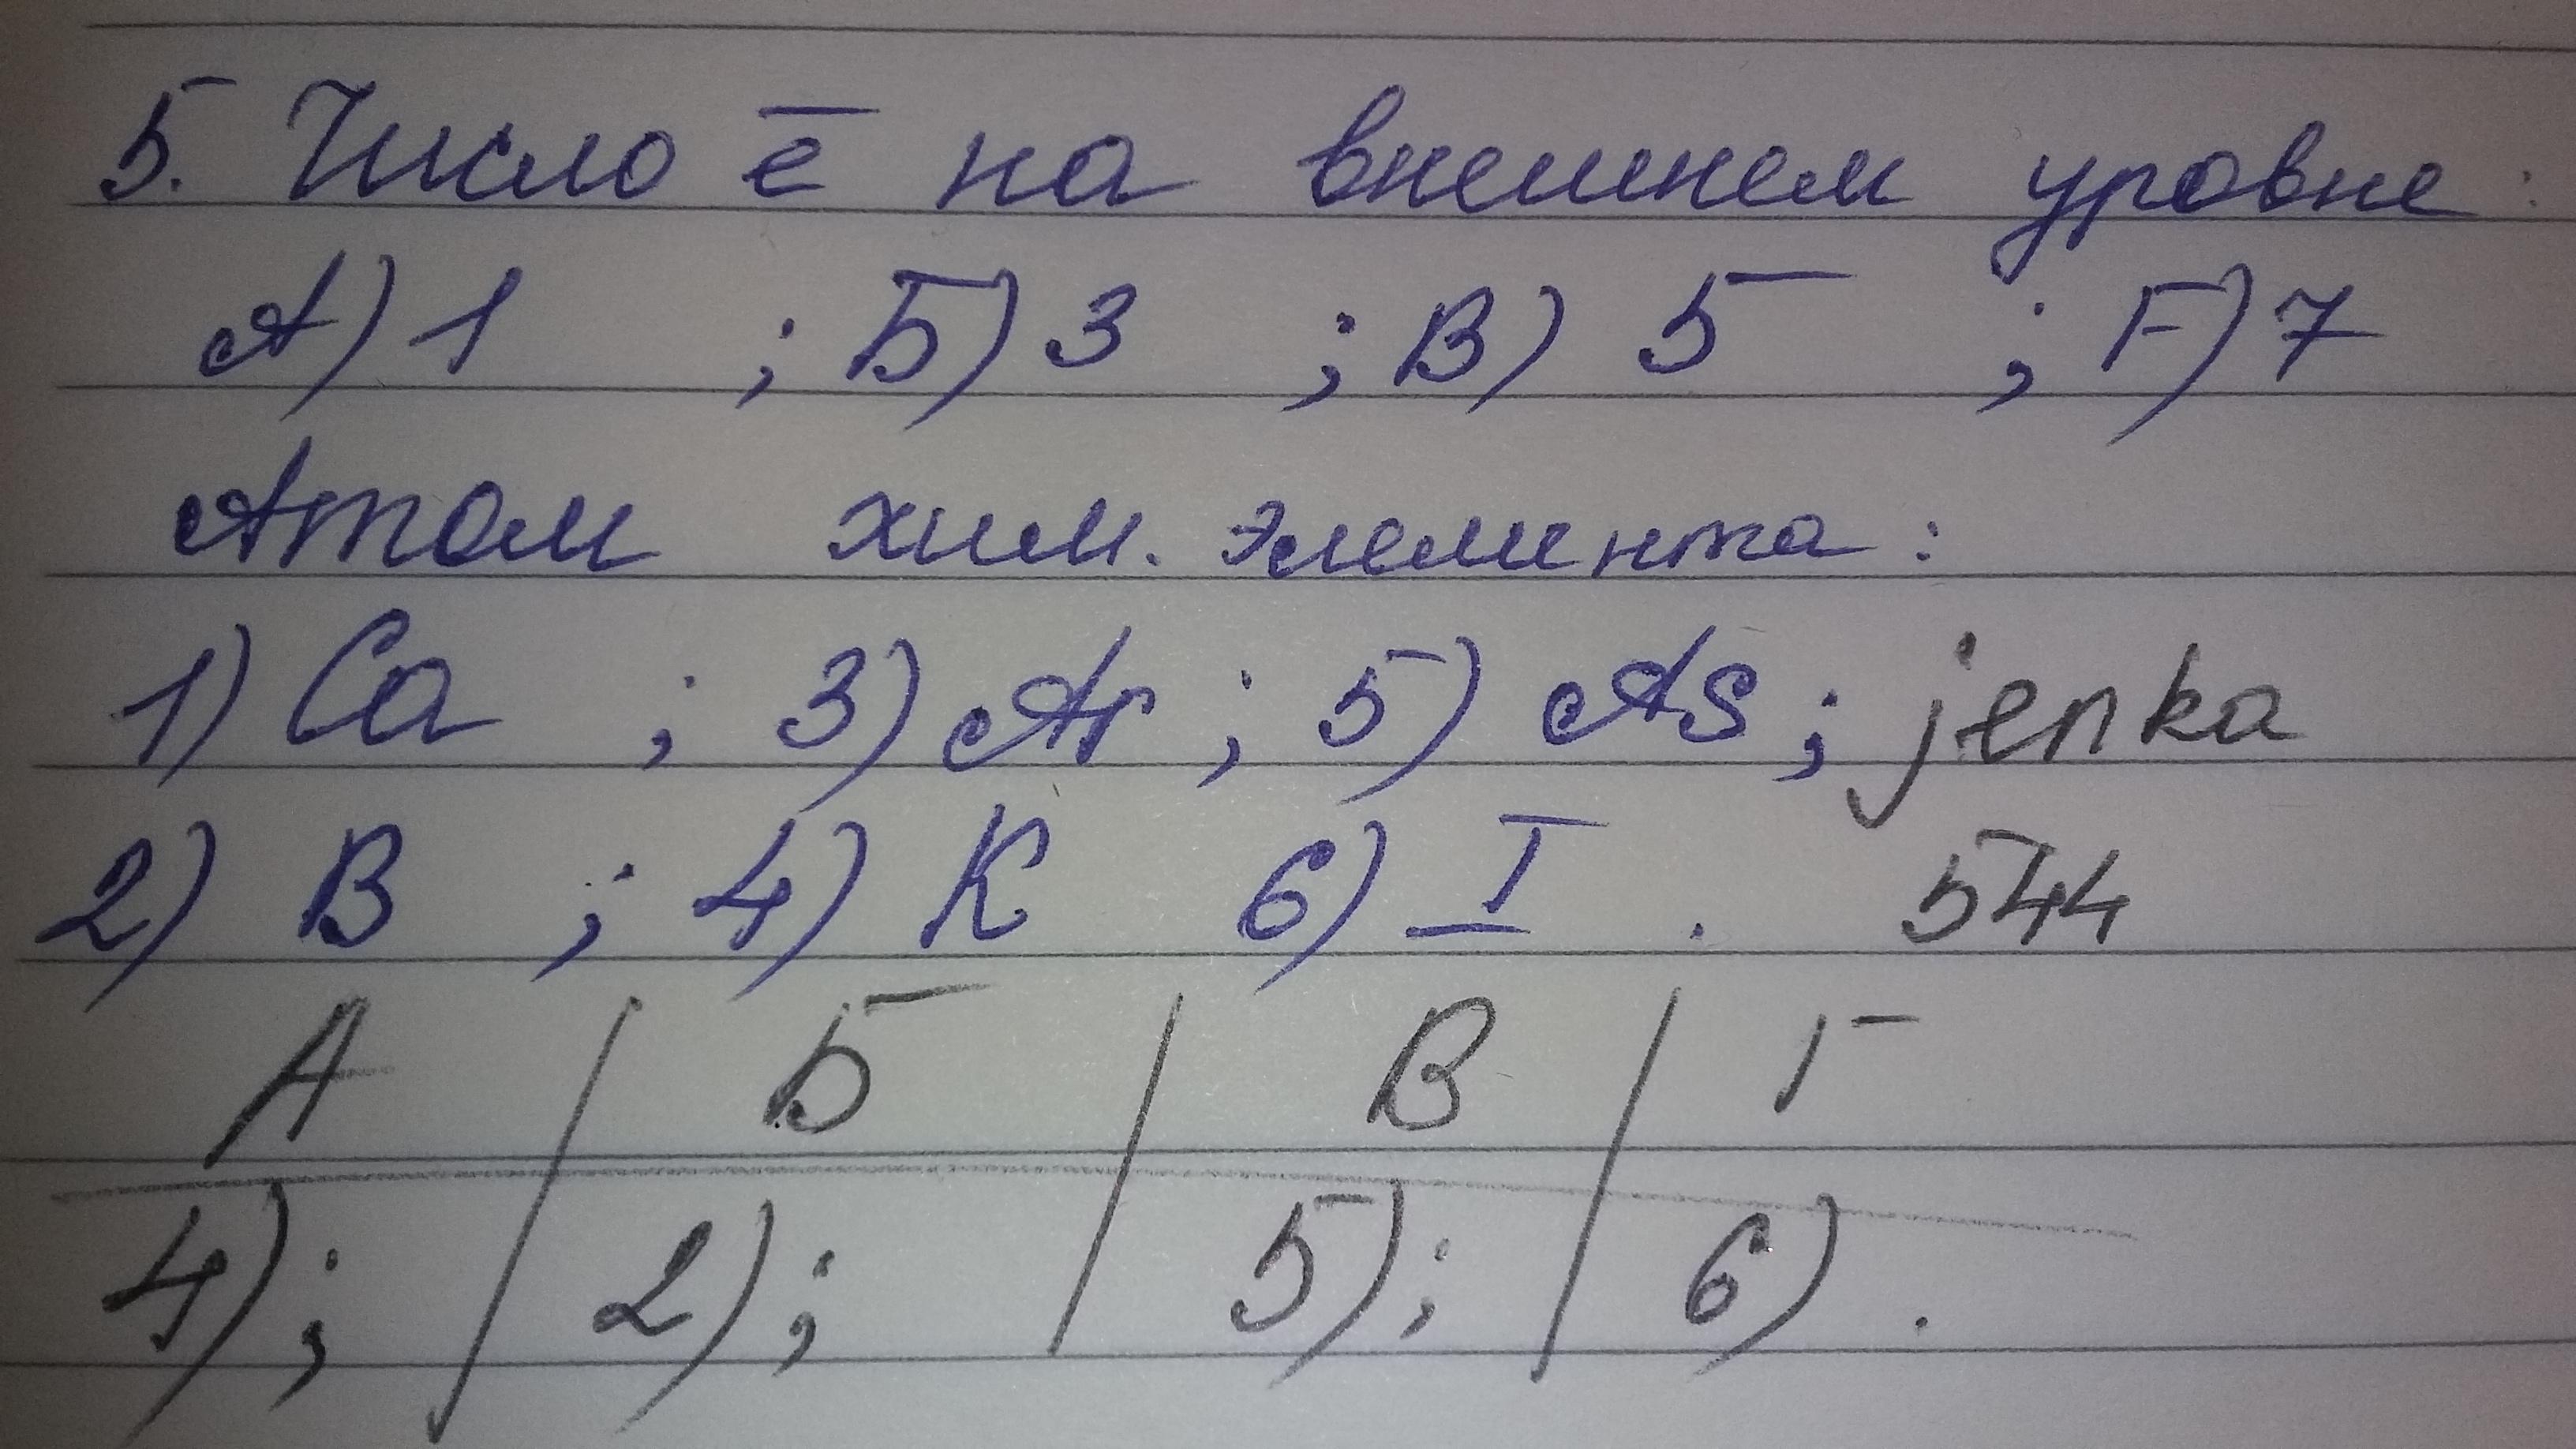 5. Число ē на внешнем уровне:
А) 1 ; Б) 3 ; В) 5 ; Г) 7
Атом хим. элемента:
1) Ca ; 3) Ar ; 5) As ; jenka
2) B ; 4) K 6) I . 544
А | Б | В | Г
4); | 2); | 5); | 6).